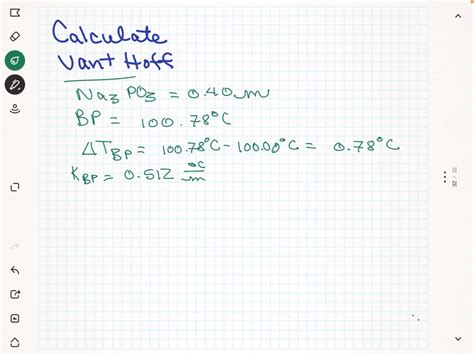 Calculate
Vant Hoff
Na₃PO₃ = 0.40 m
BP = 100.78°C
ΔT_BP = 100.78°C - 100.00°C = 0.78°C
K_BP = 0.512 °C/m
32 / 32